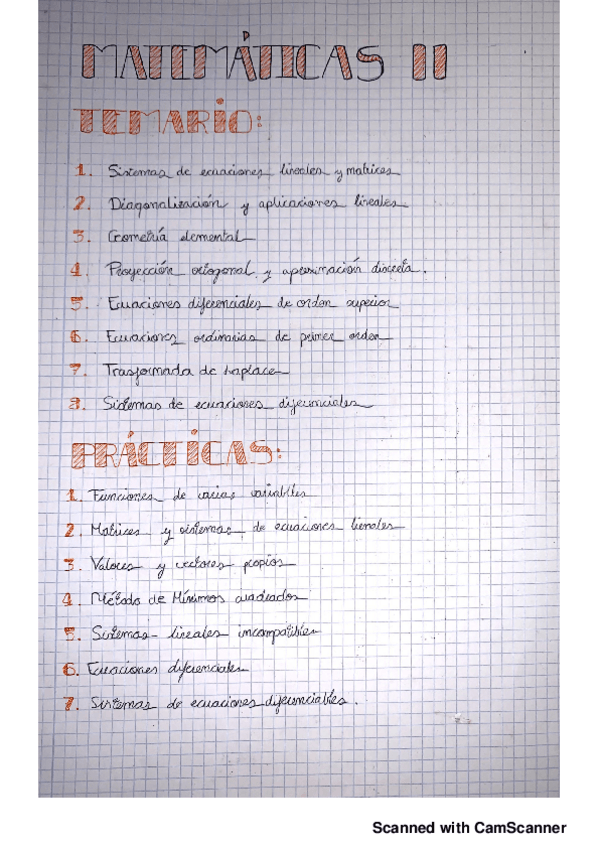 MATEMÁTICAS II
TEMARIO:
1. Sistemas de ecuaciones lineales y matrices
2. Diagonalización y aplicaciones lineales
3. Geometría elemental
4. Proyección ortogonal y aproximación discreta.
5. Ecuaciones diferenciales de orden superior
6. Ecuaciones ordinarias de primer orden
7. Trasformada de Laplace
8. Sistemas de ecuaciones diferenciales
PRÁCTICAS:
1. Funciones de varias variables
2. Matrices y sistemas de ecuaciones lienales
3. Valores y vectores propios
4. Método de Mínimos cuadrados
5. Sistemas lineales incompatibles
6. Ecuaciones diferenciales
7. Sistemas de ecuaciones diferenciables.
Scanned with CamScanner